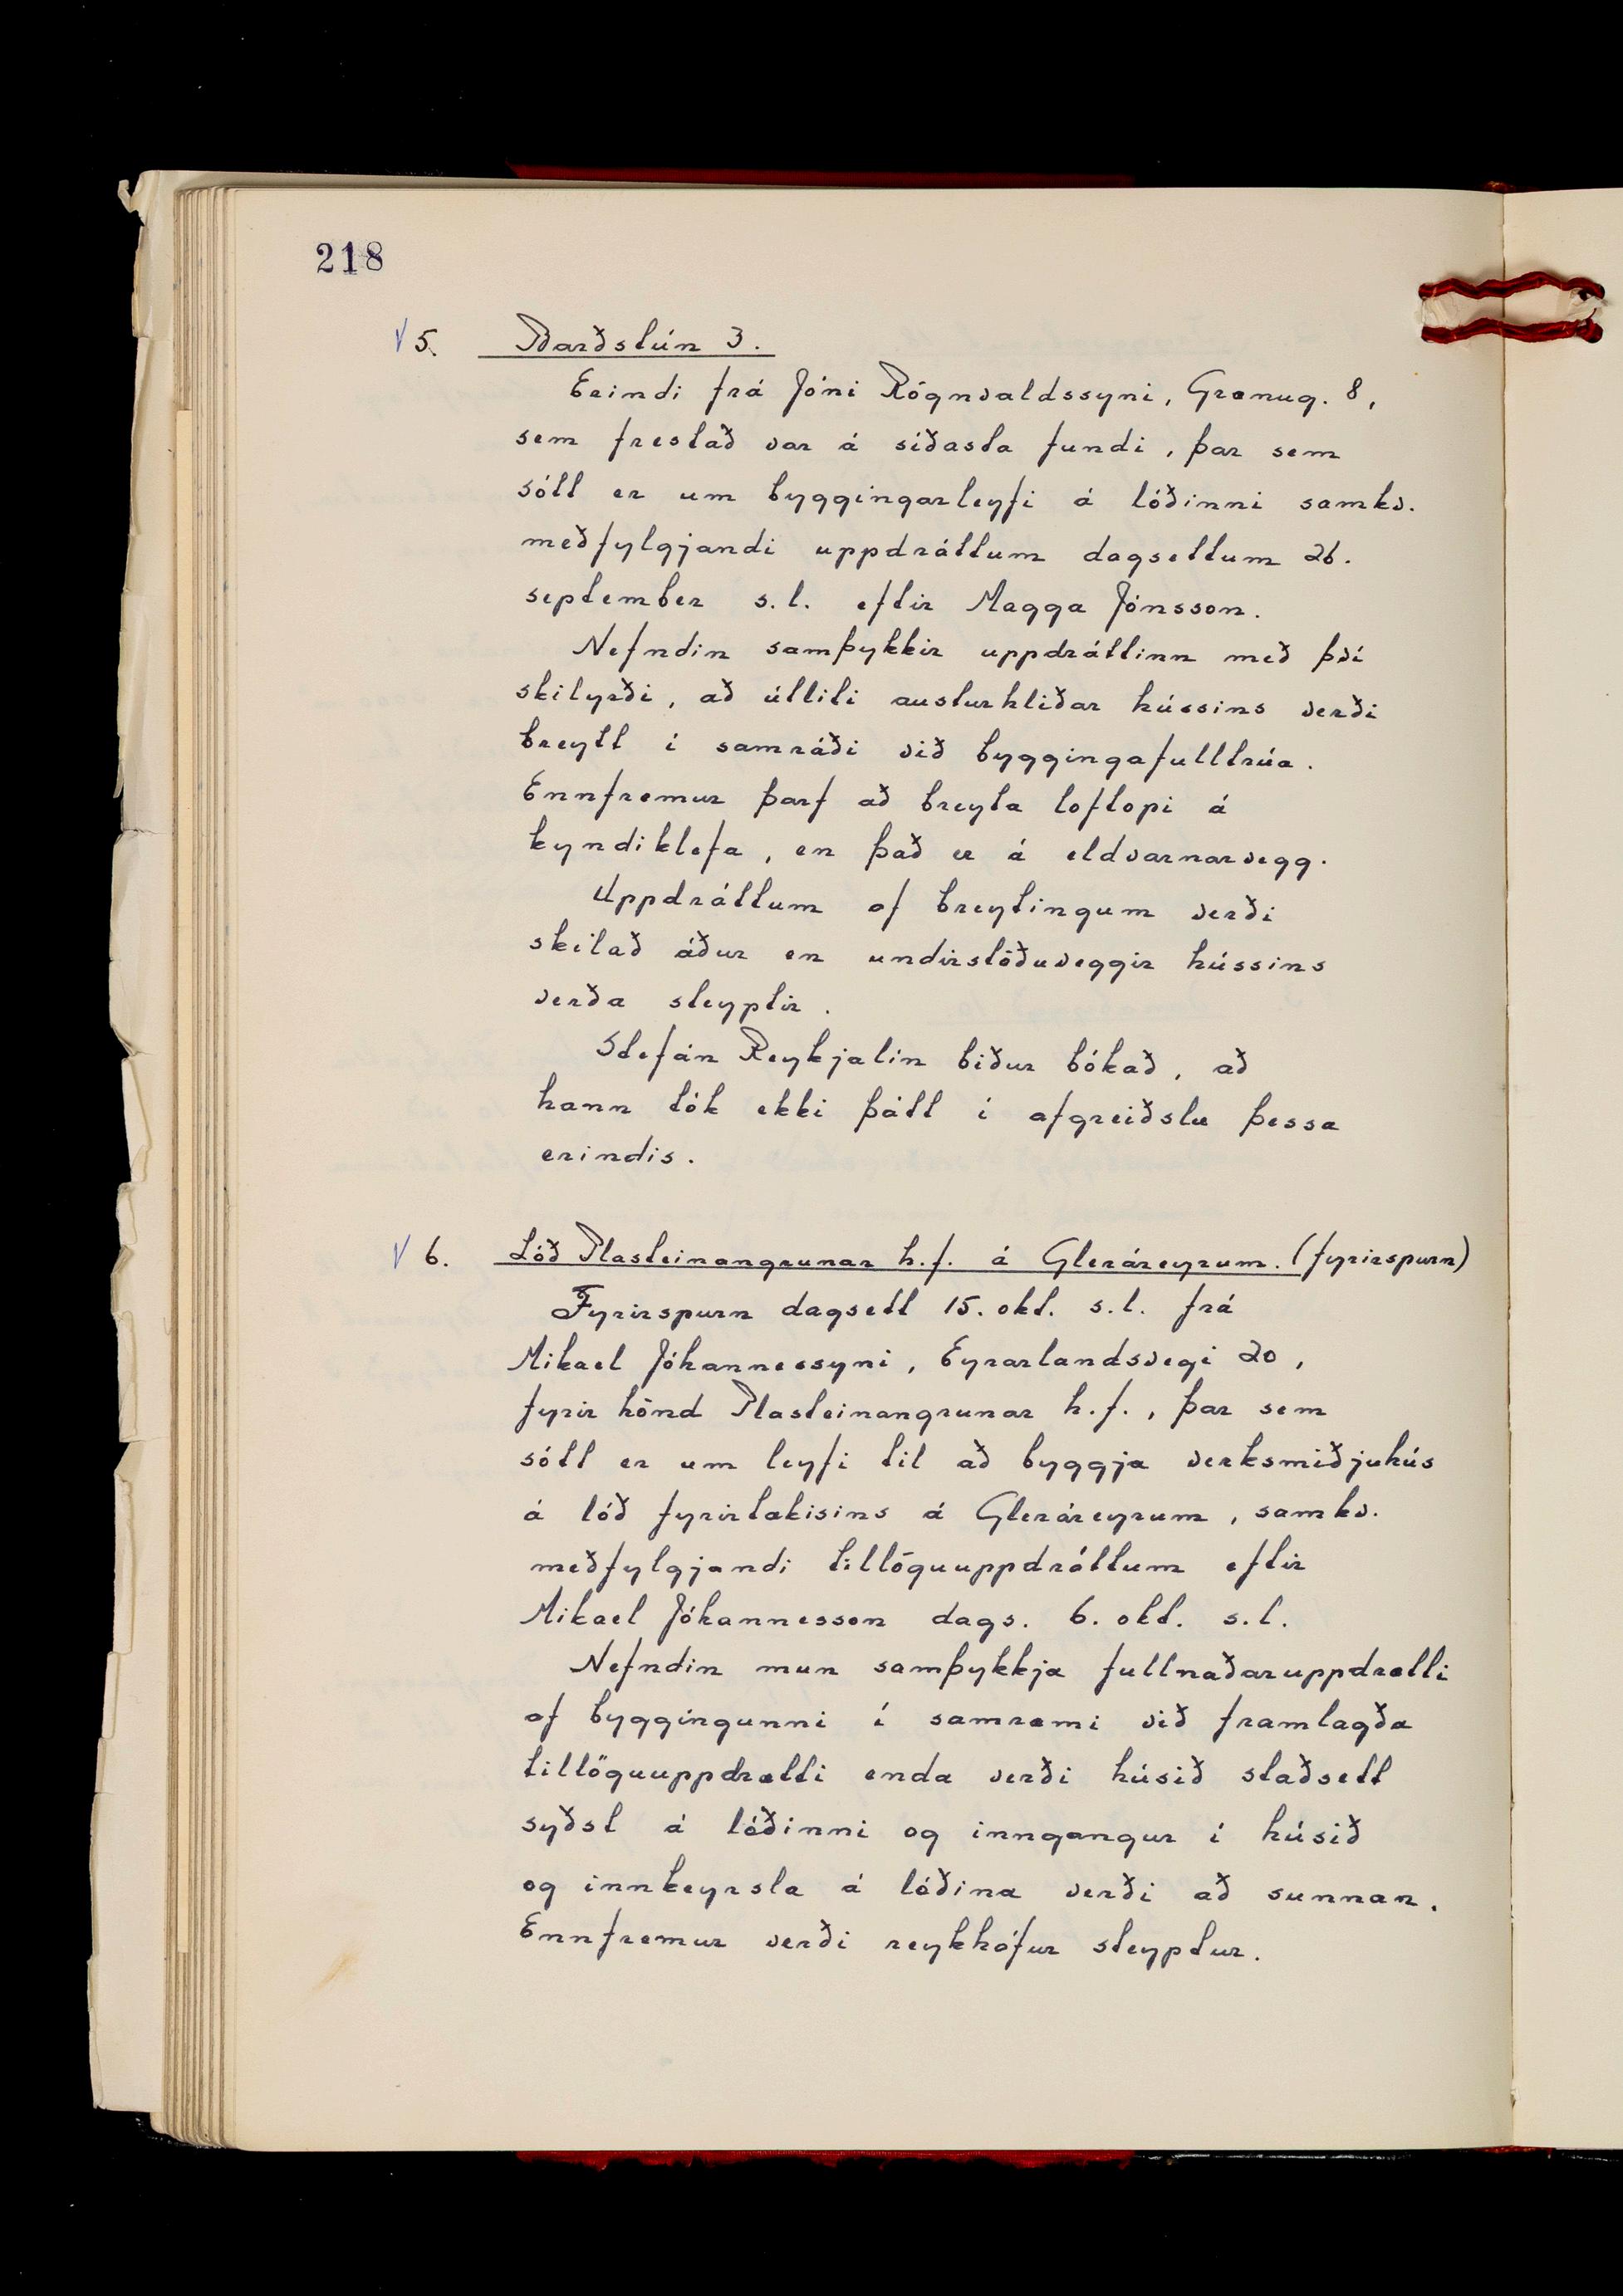 218
√ 5. Barðstún 3.
Erindi frá Jóni Rögnvaldssyni, Grænug. 8,
sem frestað var á síðasta fundi, þar sem
sótt er um byggingarleyfi á lóðinni samkv.
meðfylgjandi uppdráttum dagsettum 26.
september s.l. eftir Magga Jónsson.
Nefndin samþykkir uppdráttinn með því
skilyrði, að útliti austurhliðar hússins verði
breytt í samráði við byggingafulltrúa.
Ennfremur þarf að breyta loftopi á
kyndiklefa, en það er á eldvarnarvegg.
Uppdráttum af breytingum verði
skilað áður en undirstöðuveggir hússins
verða steyptir.
Stefán Reykjalín biður bókað, að
hann tók ekki þátt í afgreiðslu þessa
erindis.
√ 6. Lóð Plasteinangrunar h.f. á Gleráreyrum. (fyrirspurn)
Fyrirspurn dagsett 15. okt. s.l. frá
Mikael Jóhannessyni, Eyrarlandsvegi 20,
fyrir hönd Plasteinangrunar h.f., þar sem
sótt er um leyfi til að byggja verksmiðjuhús
á lóð fyrirtækisins á Gleráreyrum, samkv.
meðfylgjandi tillöguuppdráttum eftir
Mikael Jóhannesson dags. 6. okt. s.l.
Nefndin mun samþykkja fullnaðaruppdrætti
af byggingunni í samræmi við framlagða
tillöguuppdrætti enda verði húsið staðsett
syðst á lóðinni og inngangur í húsið
og innkeyrsla á lóðina verði að sunnan.
Ennfremur verði reykháfur steyptur.